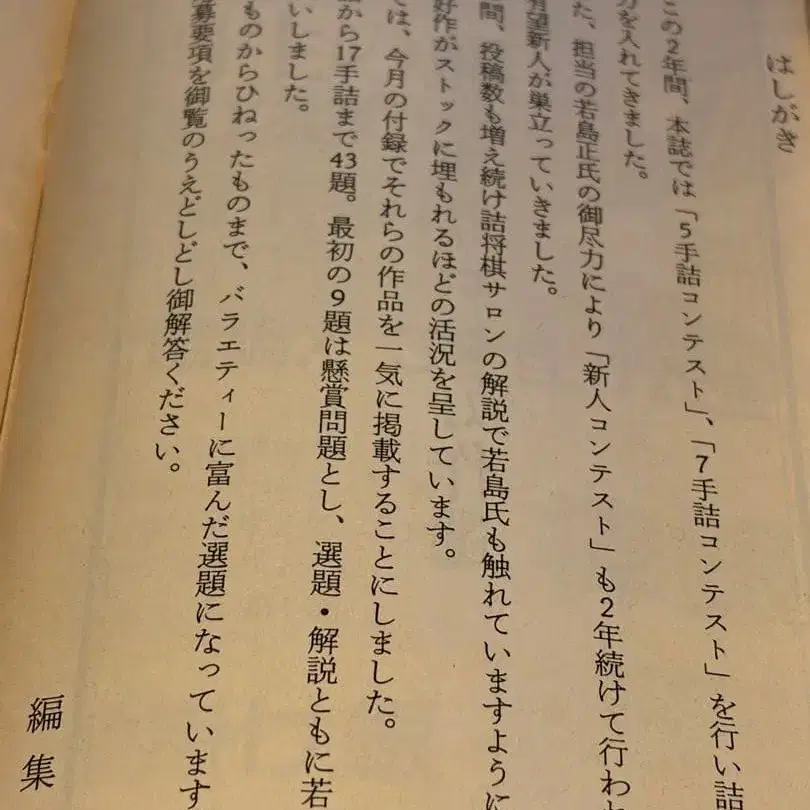 はしがき
この2年間、本誌では「5手詰コンテスト」、「7手詰コンテスト」を行い詰
力を入れてきました。
た、担当の若島正氏の御尽力により「新人コンテスト」も2年続けて行われ
有望新人が巣立っていきました。
間、投稿数も増え続け詰将棋サロンの解説で若島氏も触れていますように
好作がストックに埋もれるほどの活況を呈しています。
では、今月の付録でそれらの作品を一気に掲載することにしました。
から17手詰まで43題。最初の9題は懸賞問題とし、選題・解説ともに若
いしました。
ものからひねったものまで、バラエティーに富んだ選題になっています
募要項を御覧のうえどしどし御解答ください。
編集